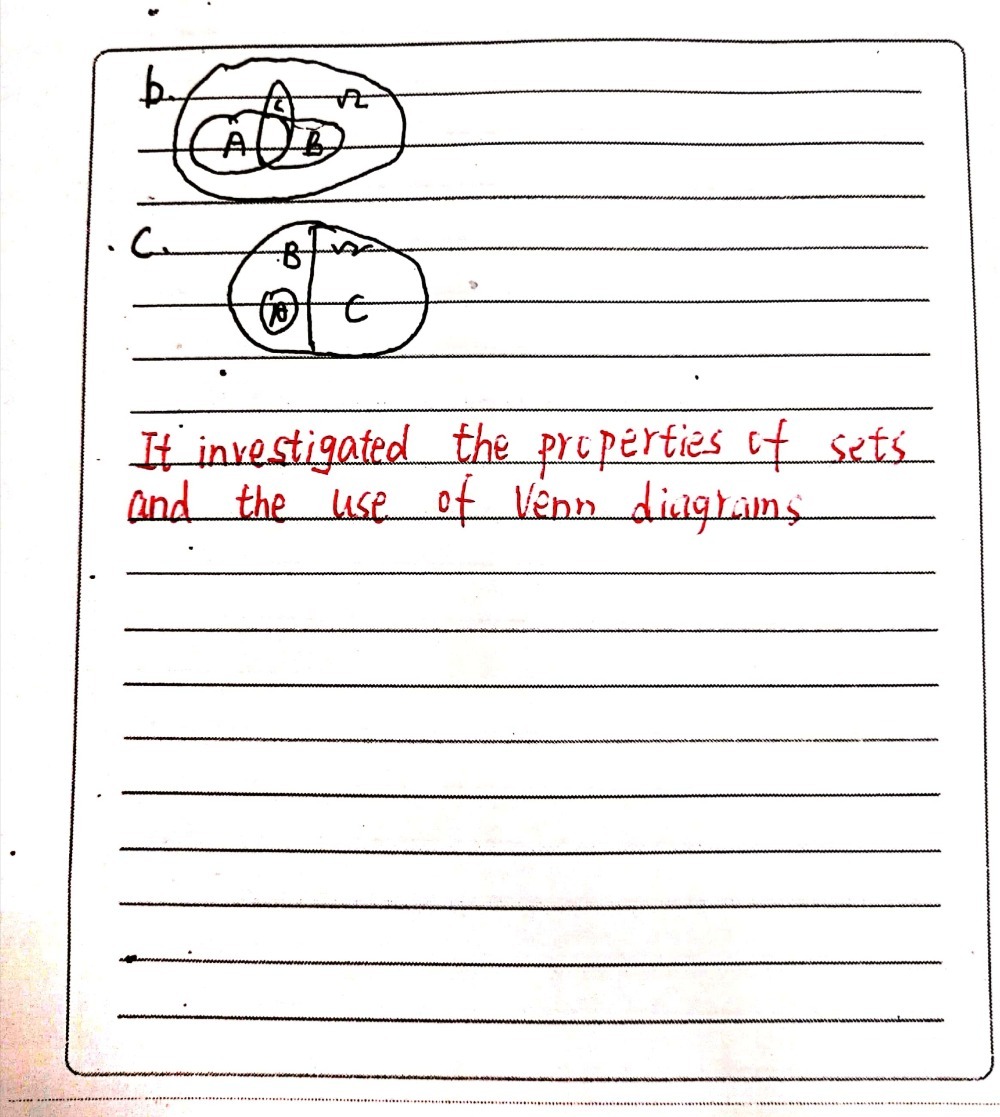 b.
C Ω
A B
C.
B Ω
A C
It investigated the properties of sets
and the use of Venn diagrams